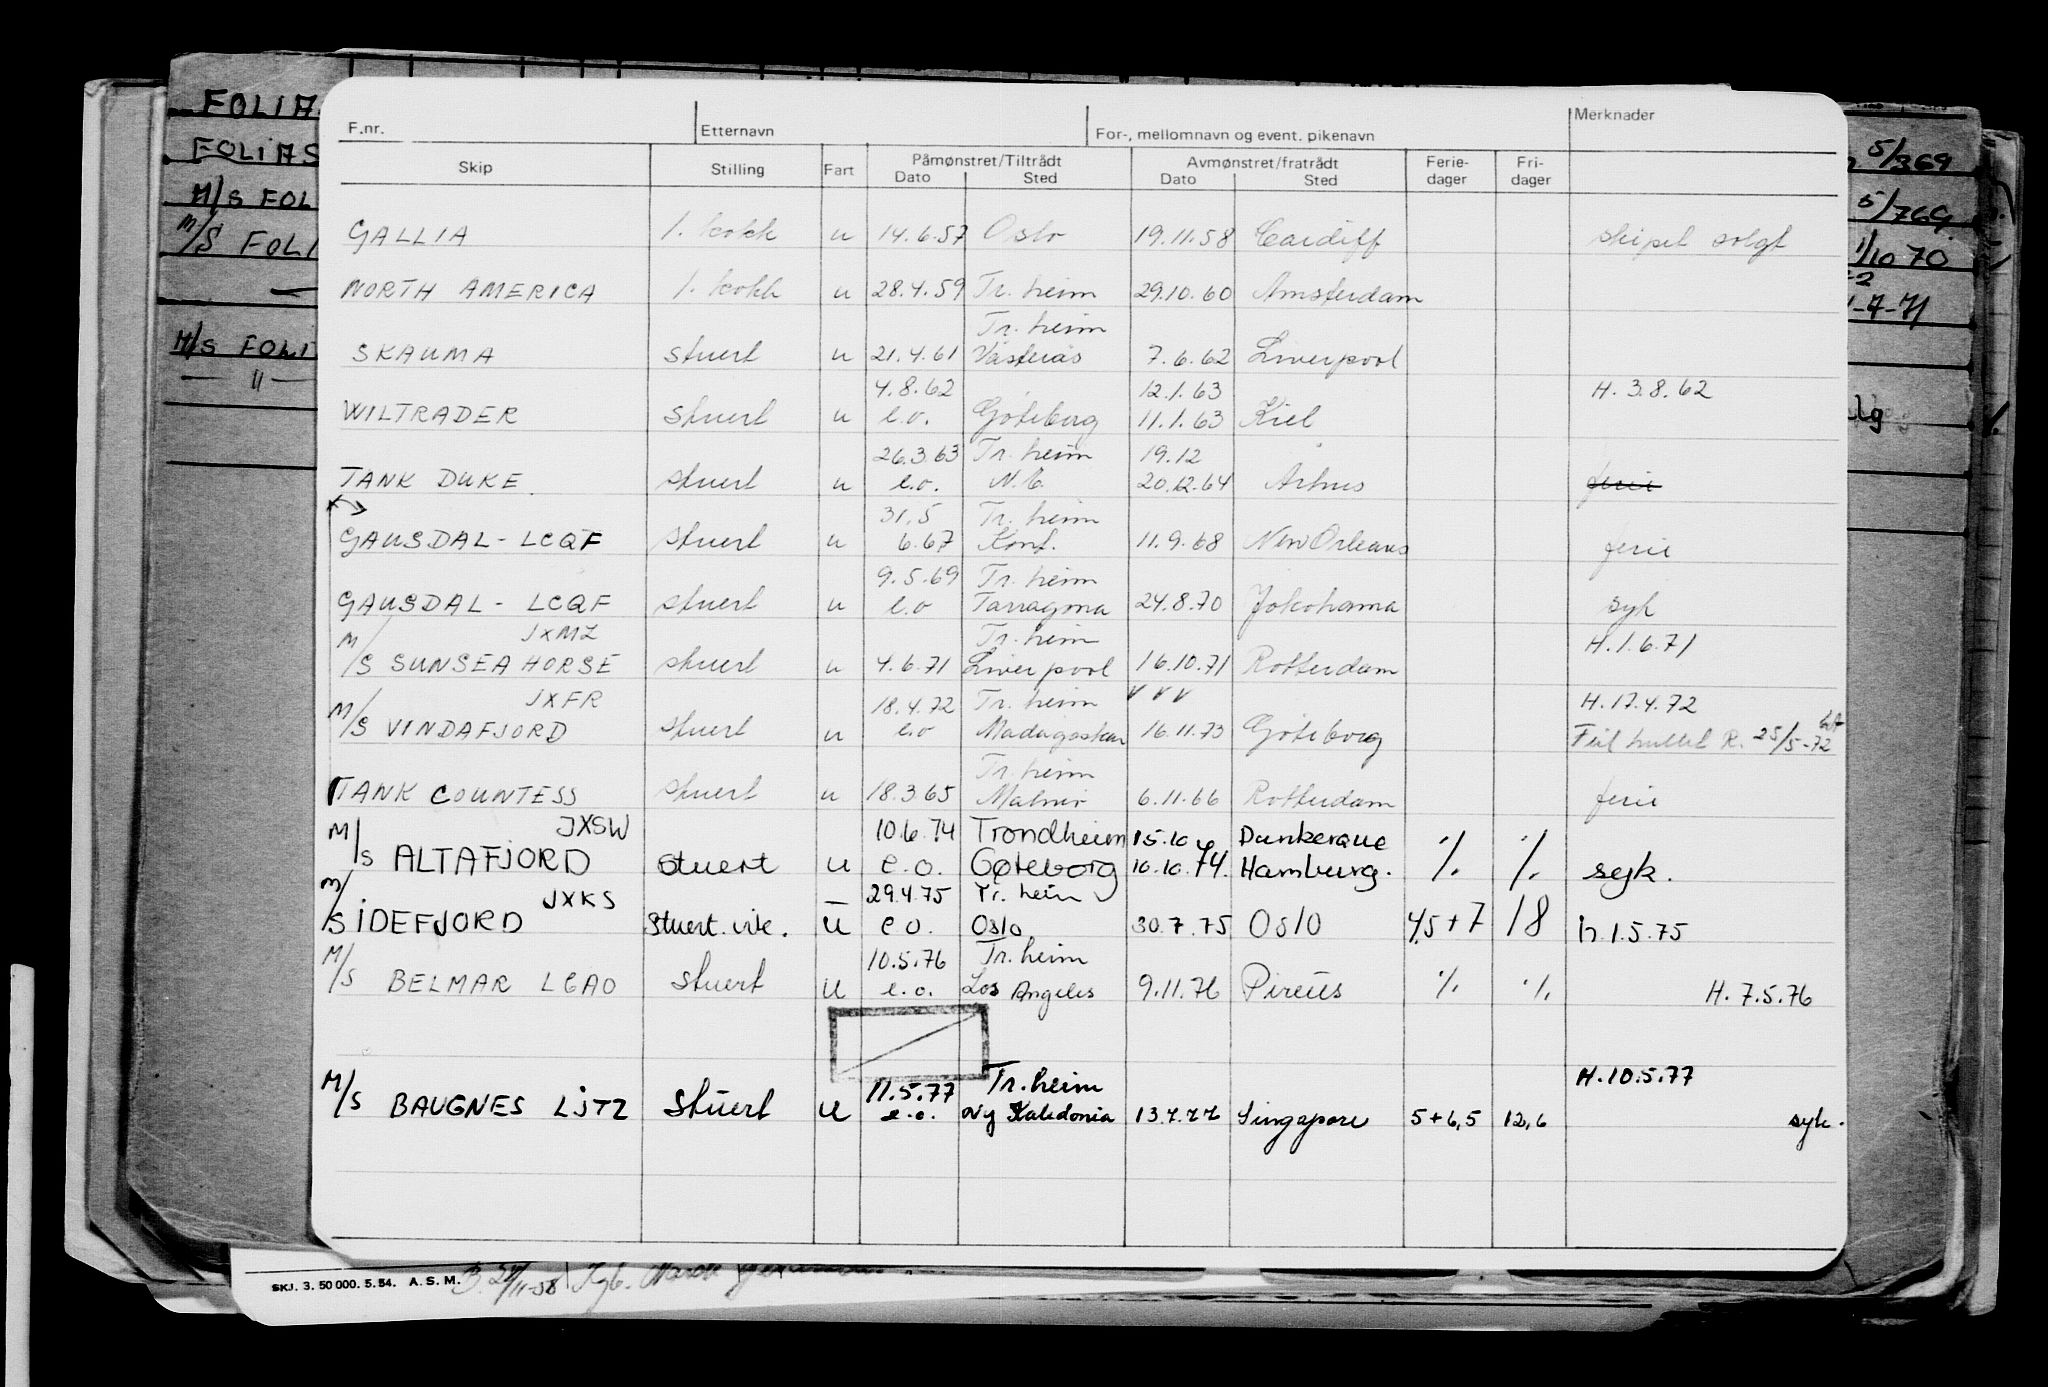 F.nr. Etternavn For-, mellomnavn og event. pikenavn Merknader
Skip Stilling Fart Påmønstret/Tiltrådt Avmønstret/fratrådt Ferie- Fri-
Dato Sted Dato Sted dager dager
GALLIA 1. kokk u 14.6.57 Oslo 19.11.58 Cardiff skipet solgt
NORTH AMERICA 1. kokk u 28.4.59 Tr.heim 29.10.60 Amsterdam
Tr.heim
SKAUMA stuert u 21.4.61 Västerås 7.6.62 Liverpool
4.8.62 12.1.63 H. 3.8.62
WILTRADER stuert u e.o. Göteborg 11.1.63 Kiel
26.3.63 Tr.heim 19.12
TANK DUKE stuert u e.o. N.C. 20.12.64 Århus ferie
31.5 Tr.heim
GAUSDAL - LCQF stuert u 6.67 Kont. 11.9.68 New Orleans ferie
9.5.69 Tr.heim
GAUSDAL - LCQF stuert u e.o Tarragona 24.8.70 Jokohama syk
JXMZ Tr.heim H.1.6.71
M/S SUNSEAHORSE stuert u 4.6.71 Liverpool 16.10.71 Rotterdam
JXFR 18.4.72 Tr.heim v v v H.17.4.72
M/S VINDAFJORD stuert u e.o Madagaskar 16.11.73 Göteborg Feil hullet R. 25/5-72
Tr.heim
TANK COUNTESS stuert u 18.3.65 Malmö 6.11.66 Rotterdam ferie
JXSW 10.6.74 Trondheim 15.10 Dunkerque
M/S ALTAFJORD stuert u e.o. Gøteborg 10.10.74. Hamburg. % % syk.
JXKS 29.4.75 Tr.heim
M/S IDEFJORD Stuert. vik. u e o. Oslo 30.7.75 OSLO 4,5+7 18 h.1.5.75
10.5.76 Tr.heim
M/S BELMAR LGAO Stuert u e.o. Los Angeles 9.11.76 Pireüs % % H. 7.5.76
11.5.77 Tr.heim H.10.5.77
M/S BAUGNES LJTZ Stuert u e.o. Ny Kaledonia 13.7.77 Singapore 5+6,5 12,6 syk.
FOLIA
FOLIAS
M/S FOL
M/S FOLI
M/S FOLI
— 〃 —
5/369
5/769
1/10 70
-7-71
SKJ. 3. 50 000. 5. 54. A. S. M.